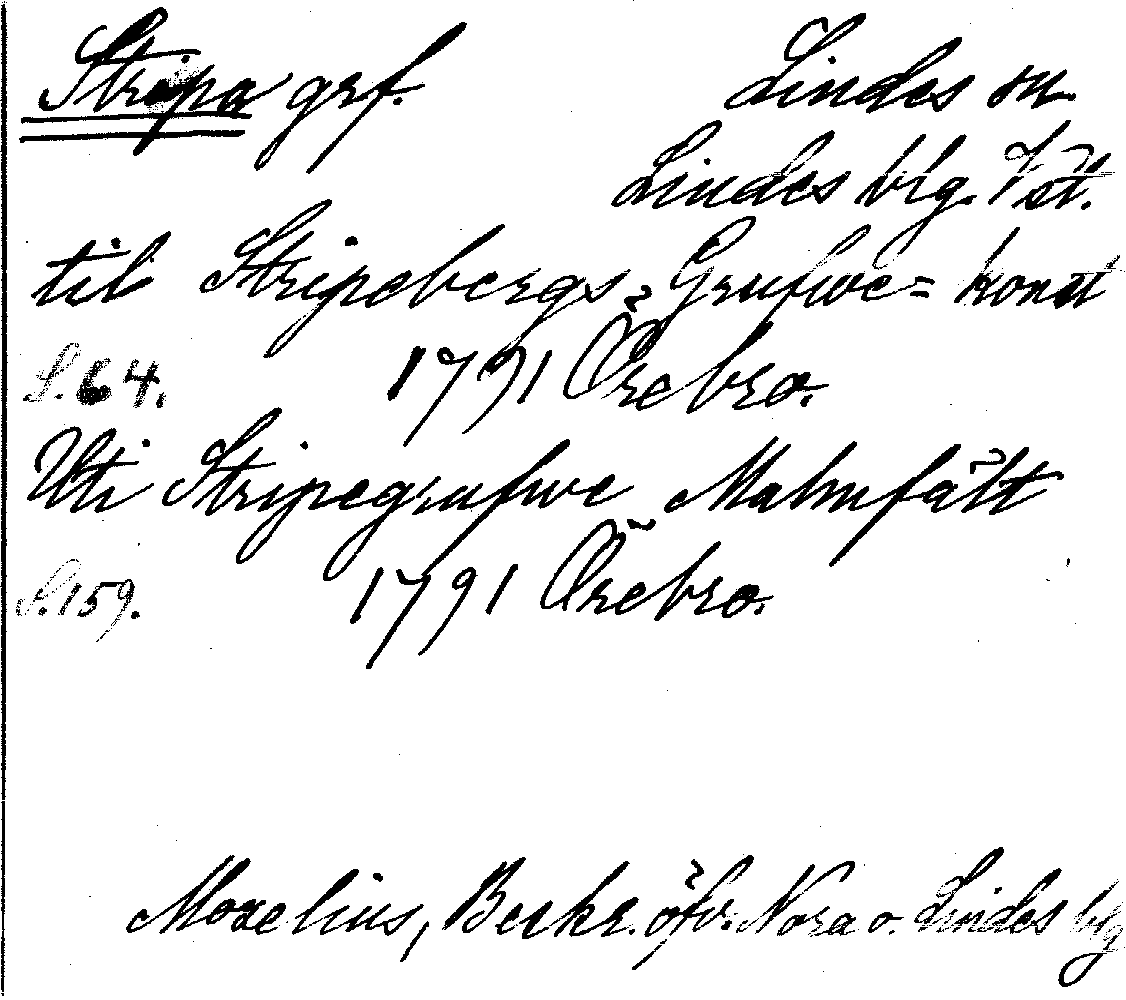 Stripa grf. Lindes sn
Lindes blg. Väst.
til Stripebergs Grufwe= konst
S.64. 1791 Örebro.
Uti Stripegrufwe Malmfält
S.159. 1791 Örebro.
Moxelius, Beskr. öfv. Nora o. Lindes blg